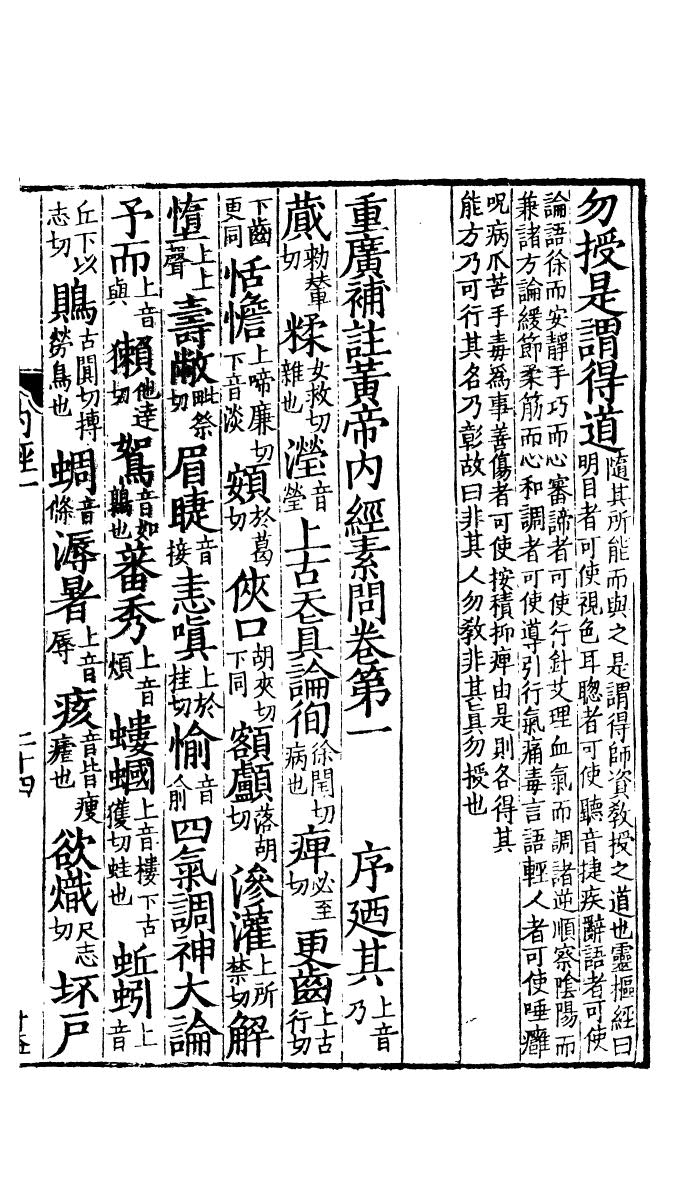 勿授是謂得道隨其所能而與之是謂得師資教授之道也靈樞經曰
明目者可使視色耳聦者可使聽音捷疾辭語者可使
論語徐而安靜手巧而心審諦者可使行針艾理血氣而調諸逆順察陰陽而
兼諸方論緩節柔筋而心和調者可使導引行氣痛毒言語輕人者可使唾癰
呪病爪苦手毒爲事善傷者可使按積抑痺由是則各得其
能方乃可行其名乃彰故曰非其人勿教非其真勿授也
重廣補註黃帝內經素問卷第一
序廼其上音乃
蕆勑輦切 糅女救切雜也 瀅音瑩 上古天真論徇徐閏切病也 痺必至切 更齒上古行切
下齒更同 恬憺上啼廉切下音淡 頞於葛切 俠口胡夾切下同 額顱落胡切 滲灌上所禁切 解
墮上上聲 壽敝毗祭切 眉睫音接 恚嗔上於桂切 愉音俞 四氣調神大論
予而上音與 獺他達切 鴽音如鶉也 蕃秀上音煩 螻蟈上音樓下古獲切蛙也 蚯蚓上音
丘下以志切 鵙古闃切搏勞鳥也 蜩音條 溽暑上音辱 痎音皆瘦瘧也 欲熾尺志切 坏戶
內經一
二十四